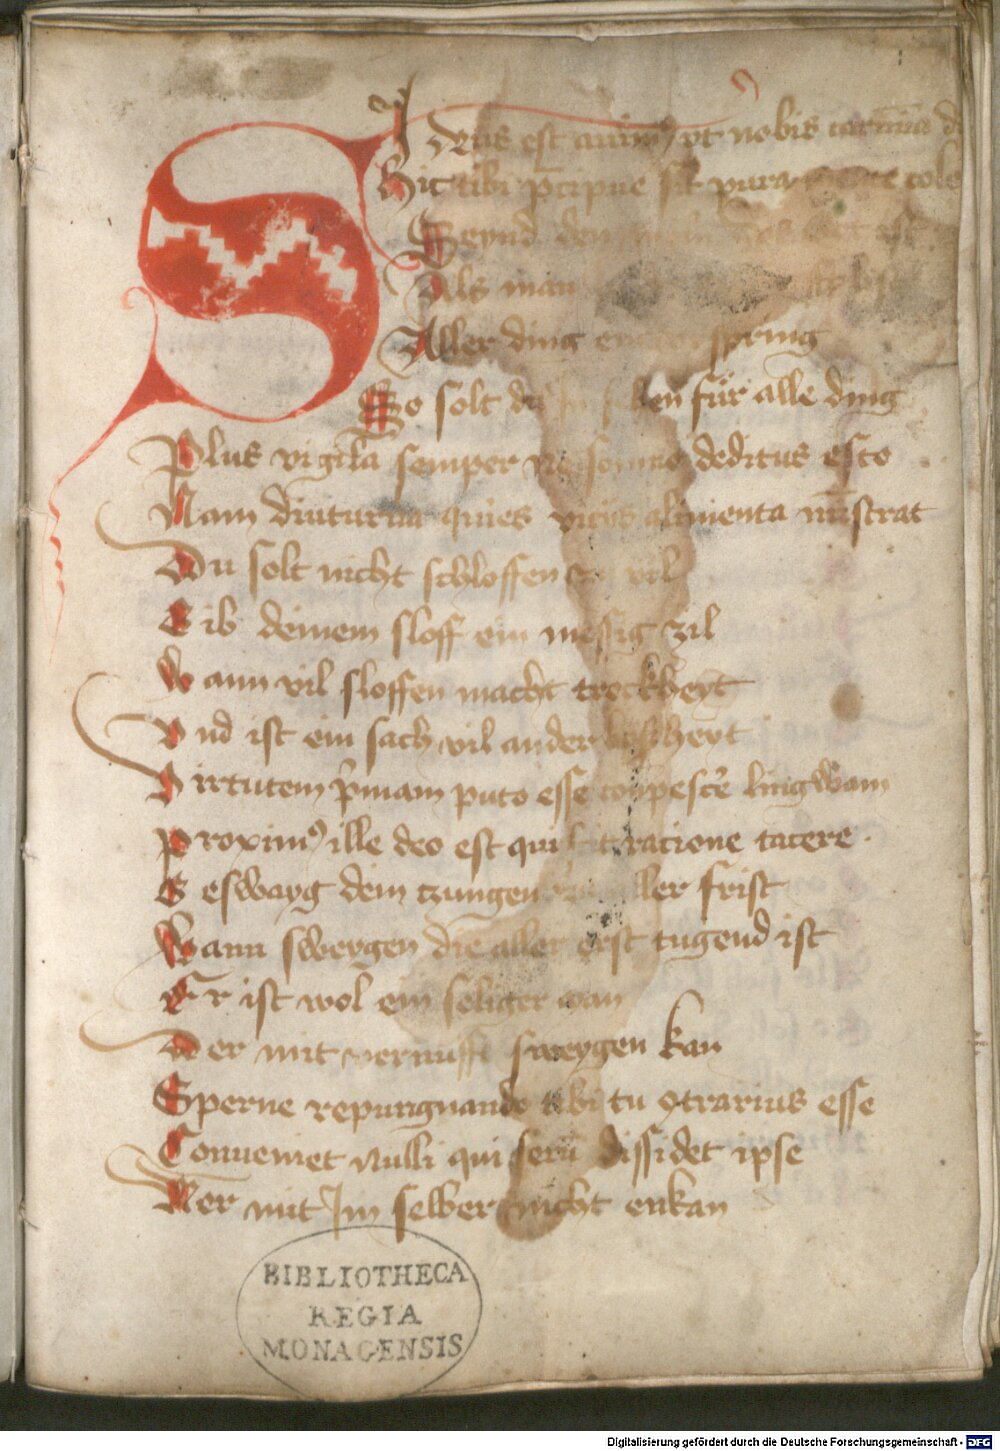 SI deus est animꝰ vt nobis carmina d
Hic tibi p̄cipue sit pura colē
Seynd
Als man
Aller ding spring
So solt du In für alle ding
Plus vigila semper ne sompno deditus esto
Nam diuturna quies vicijs alimenta mīstrat
Du solt nicht schloffen zu vil
Gib deinem sloff ein messig zil
Wann vil sloffen macht trockheyt
Vnd ist ein sach vil ander boßheyt
Virtutem p̄mam puto esse conpescēr lingwam
Proximꝰ ille deo est qui scit racione tacere
Gesweyg dein tzungen aller frist
Wann sweygen die aller erst tugend ist
Er ist wol ein seliger man
Der mit vernufft sweygen kan
Sperne repungnando tibi tu ꝯtrarius esse
Conueniet nulli qui secū dissidet ipse
Wer mit Im selber nicht enkan
BIBLIOTHECA
REGIA
MONACENSIS
Digitalisierung gefördert durch die Deutsche Forschungsgemeinschaft - DFG